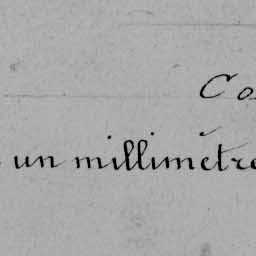 Co
un millimètre